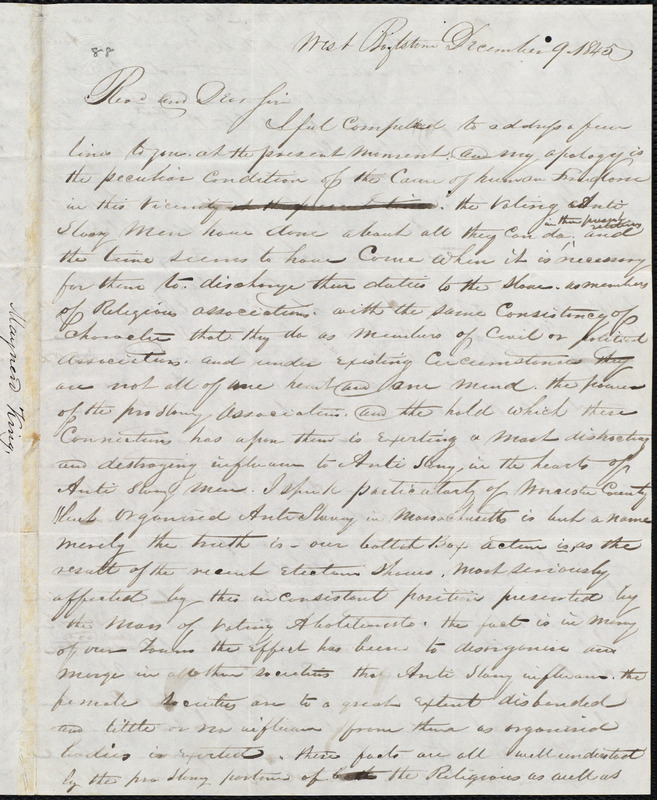 88
West Boylston December 9. 1845
Revd and Dear Sir
I feel Compelled to address a few
lines to you. at the present moment. and my apology is
the peculiar Condition of the Cause of human Freedom
in this Vicinity the Voting Anti
in their present relations
Slavery Men have done about all they Can do, and
the time seems to have Come when it is necessary
for them to discharge their duties to the Slave. as members
of Religious associations. with the same Consistency of
Character that they do as Members of Civil or political
associations. and under Existing Circumstances they
are not all of one heart and one mind. the power
of the pro Slavery Association. and the hold which these
Connections has upon them is Exerting a most distracting
and destroying influence to Anti Slavery, in the hearts of
Anti Slavery Men. I speak particularly of Worcester County
organised Anti Slavery in Massachusetts is but a name
merely the truth is - our ballot Box action is as the
result of the recent Elections Shows. most seriously
affected by this inconsistent position presented by
the Mass of Voting Abolitionists. the fact is in many
of our Towns the Effect has been to disorganise and
merge in all other societies that Anti Slavery influence. the
female societies are to a great Extent disbanded
and little or no influence from them as organised
bodies is Exerted. these facts are all well understood
by the pro Slavery portions of the Religious as well as
Maynard King,